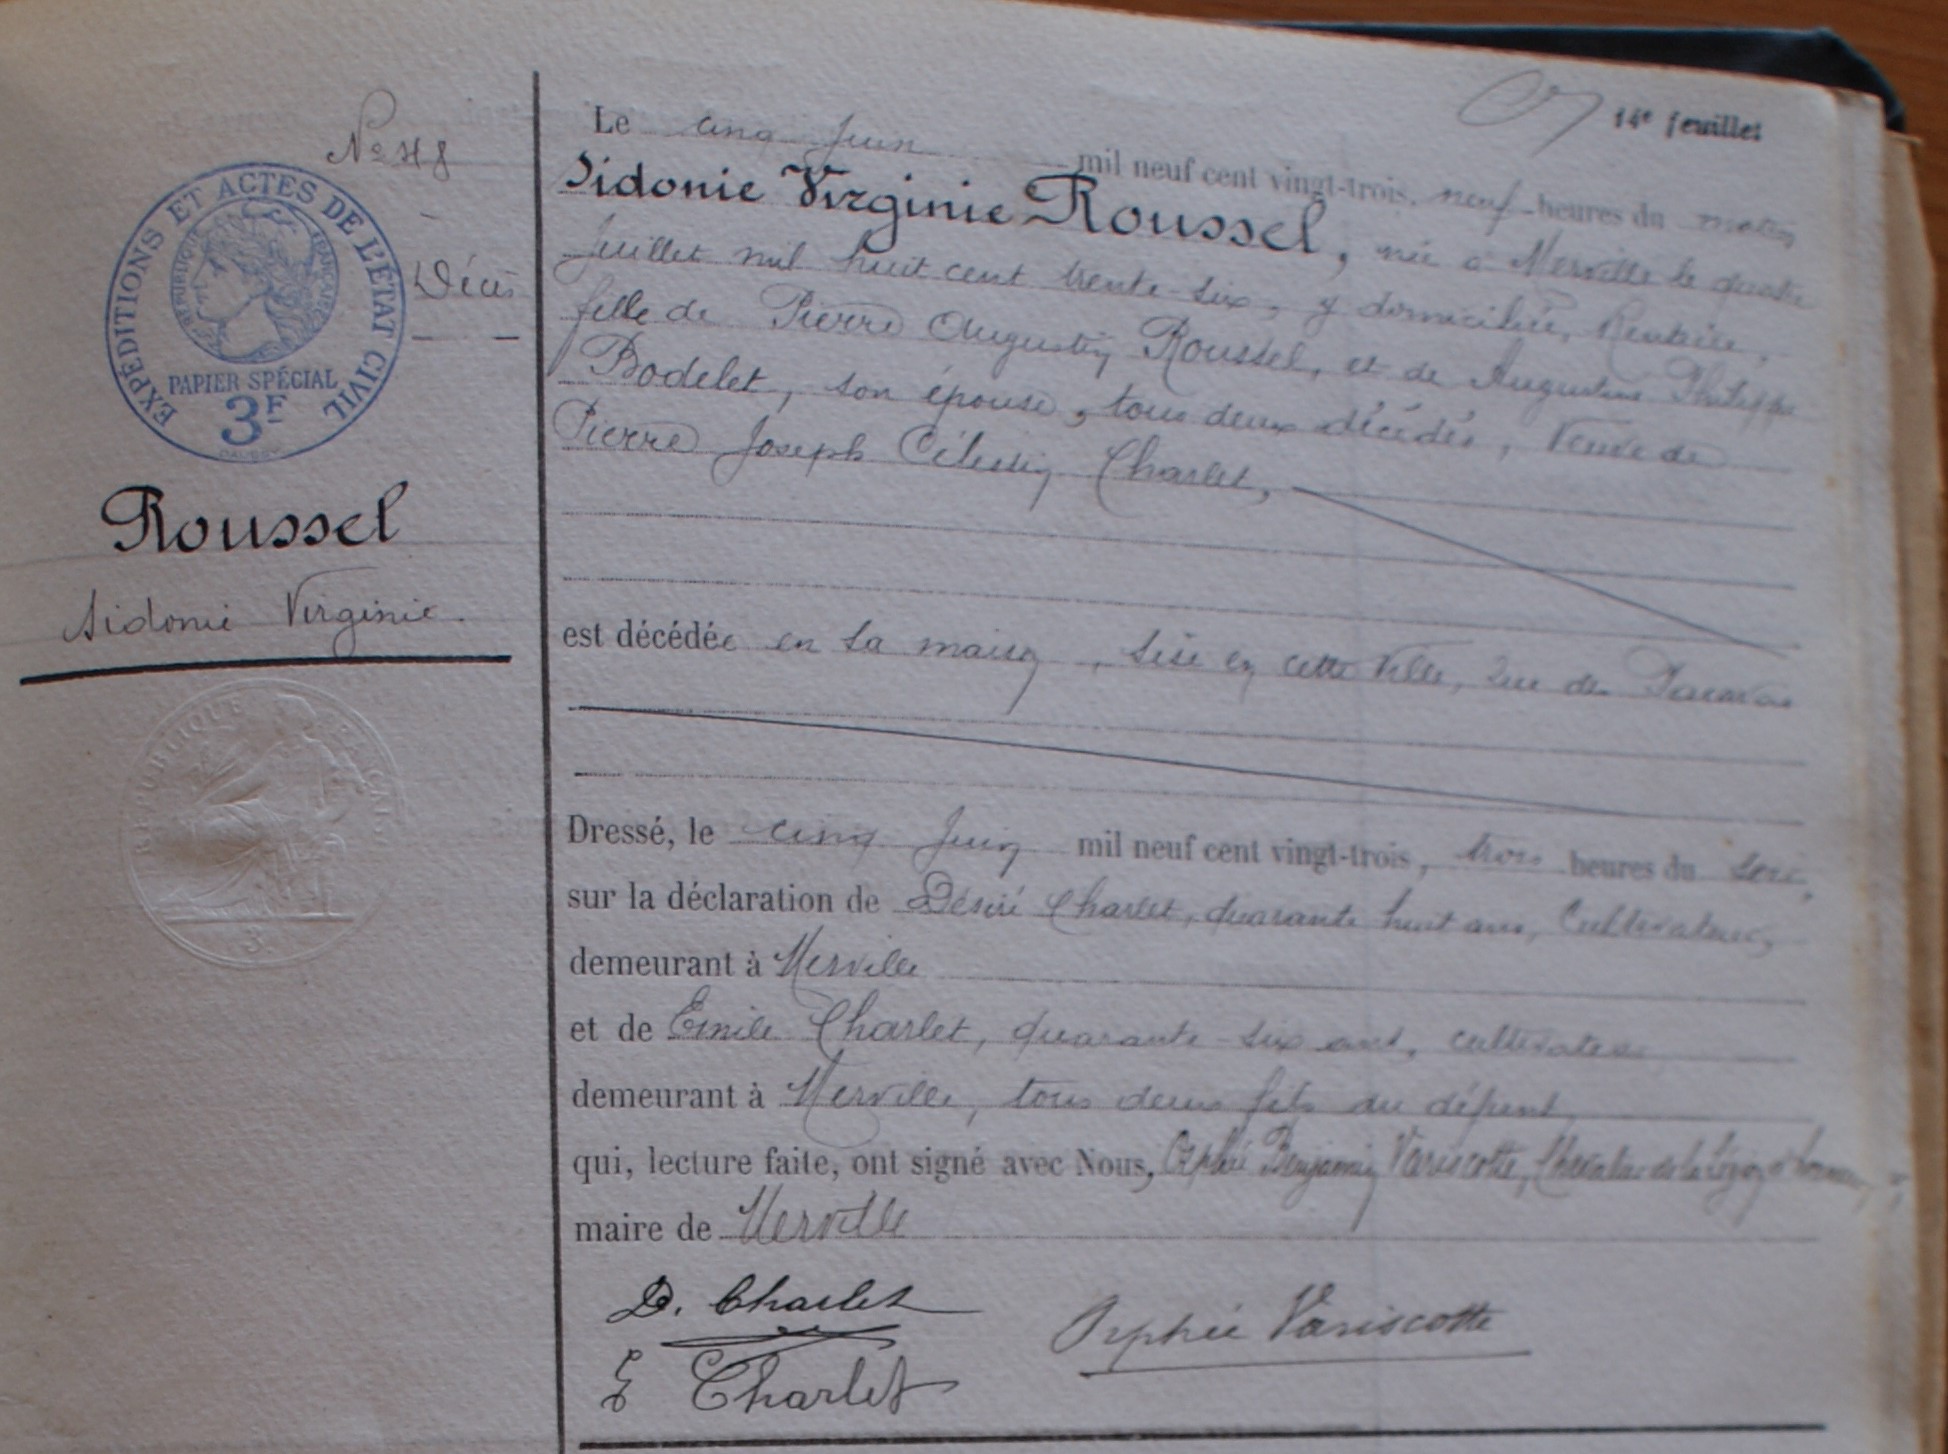 14e feuillet
No 48
EXPÉDITIONS ET ACTES DE L'ÉTAT CIVIL
RÉPUBLIQUE FRANÇAISE
PAPIER SPÉCIAL
3F
DAUSSY
Décès
Roussel
Sidonie Virginie
RÉPUBLIQUE FRANÇAISE
3
Le cinq Juin mil neuf cent vingt-trois, neuf heures du matin
Sidonie Virginie Roussel, née à Merville le quatre
Juillet mil huit cent trente-six, y domiciliée, Rentière,
fille de Pierre Augustin Roussel, et de Augustine Philippe
Bodelet, son épouse, tous deux décédés, Veuve de
Pierre Joseph Célestin Charlet,
est décédée en sa maison, sise en cette Ville, rue des
Dressé, le cinq Juin mil neuf cent vingt-trois, trois heures du soir,
sur la déclaration de Désiré Charlet, quarante huit ans, Cultivateur,
demeurant à Merville
et de Emile Charlet, quarante-six ans, cultivateur
demeurant à Merville, tous deux fils du défunt
qui, lecture faite, ont signé avec Nous, Orphée Benjamin Variscotte, Chevalier de la Légion d'honneur,
maire de Merville
D. Charlet
Orphée Variscotte
E Charlet